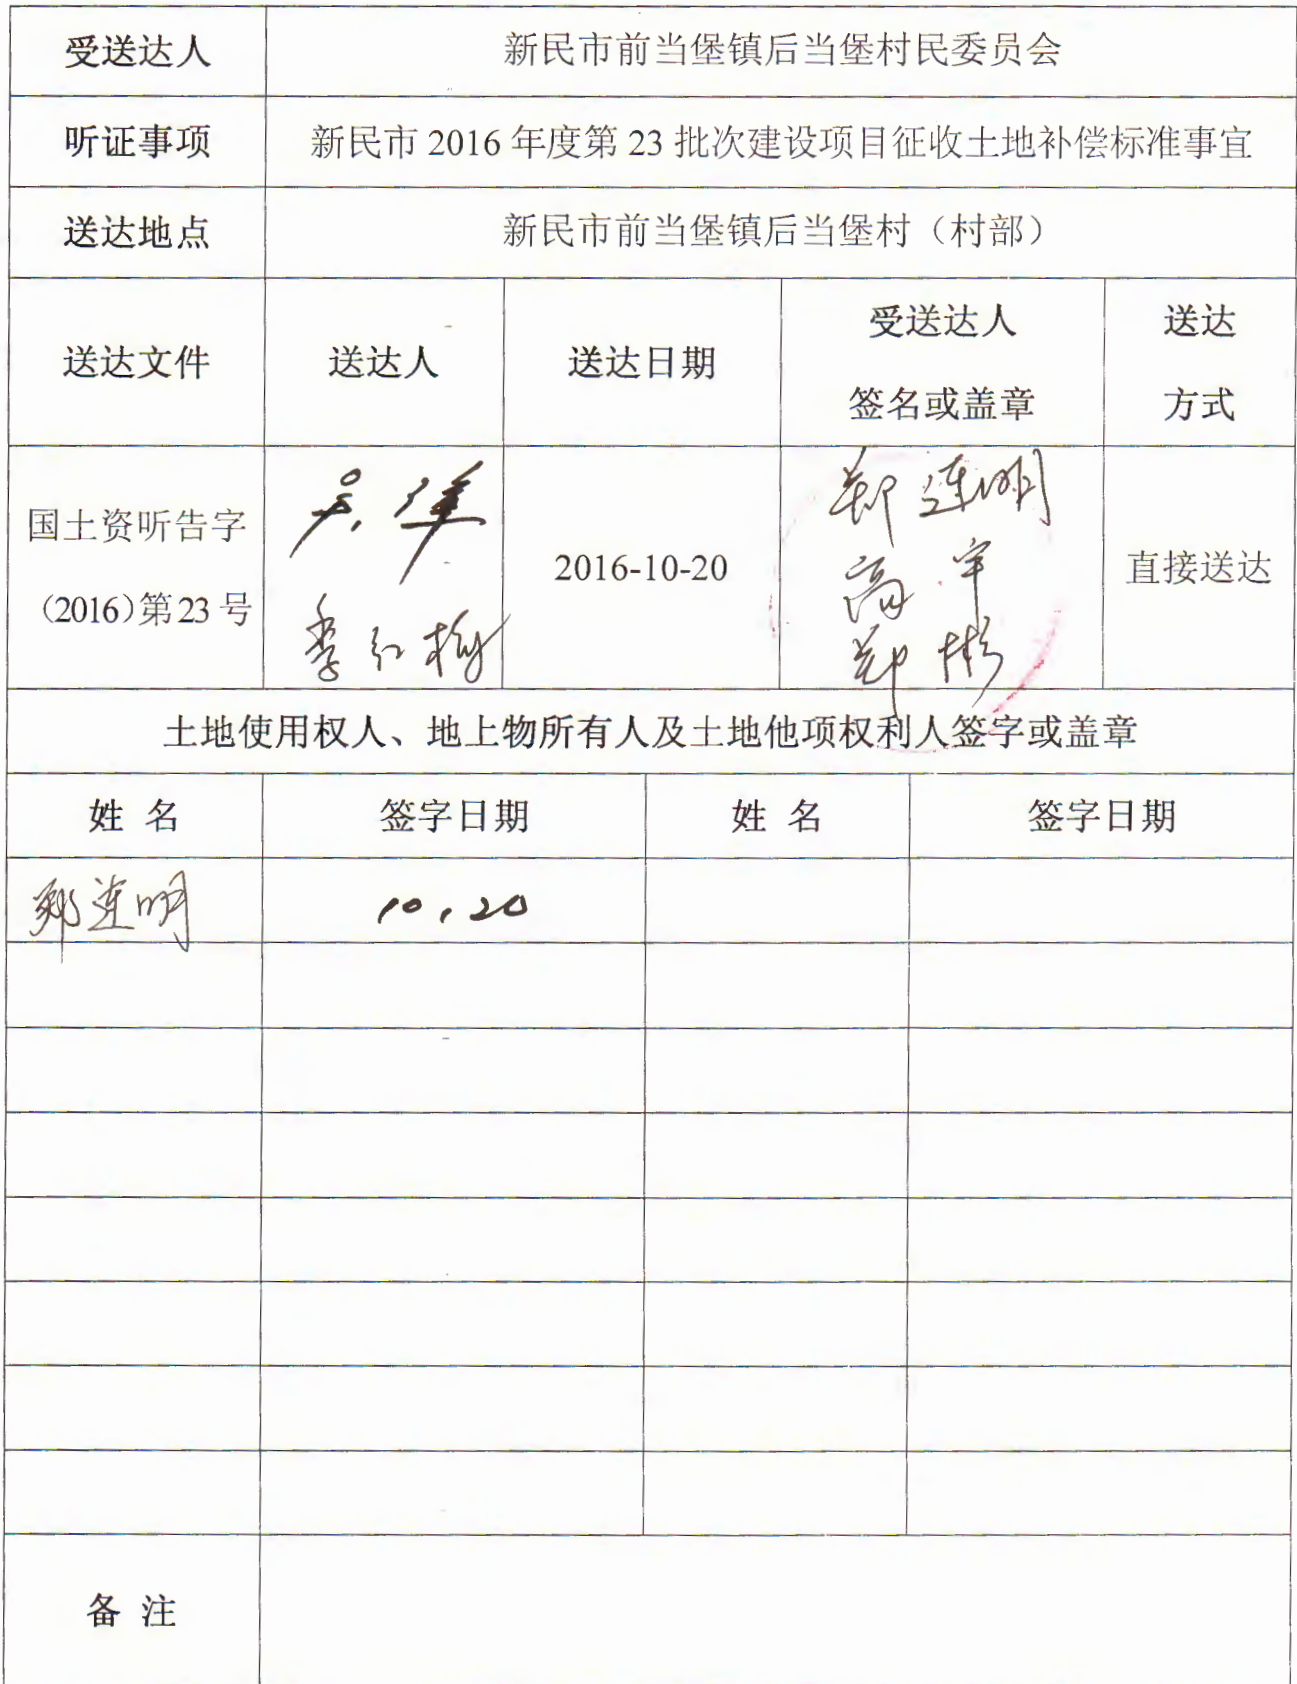 受送达人 新民市前当堡镇后当堡村民委员会
听证事项 新民市 2016 年度第 23 批次建设项目征收土地补偿标准事宜
送达地点 新民市前当堡镇后当堡村（村部）
送达文件 送达人 送达日期 受送达人 签名或盖章 送达 方式
国土资听告字
（2016）第 23 号
李红梅
2016-10-20
郑连明
高宇
郑彬
直接送达
土地使用权人、地上物所有人及土地他项权利人签字或盖章
姓 名 签字日期 姓 名 签字日期
郑连明 10.20
备 注